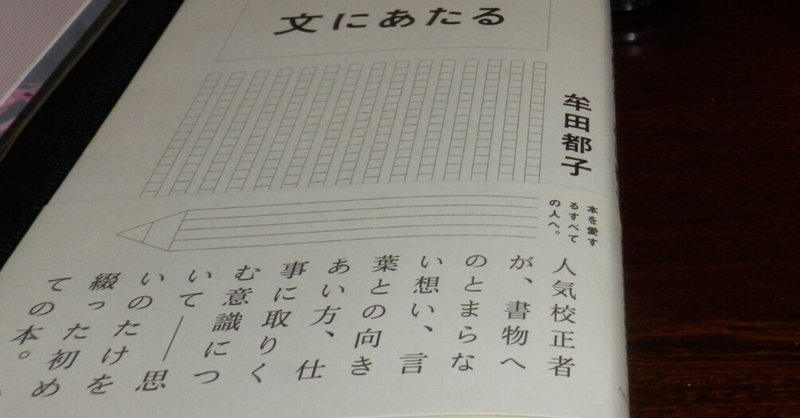 文にあたる
牟田都子
本を愛す
るすべて
の人へ。
人気校正者
が、書物へ
のとまらな
い想い、言
葉との向き
あい方、仕
事に取りく
む意識につ
いて――思
いのたけを
綴った初め
ての本。